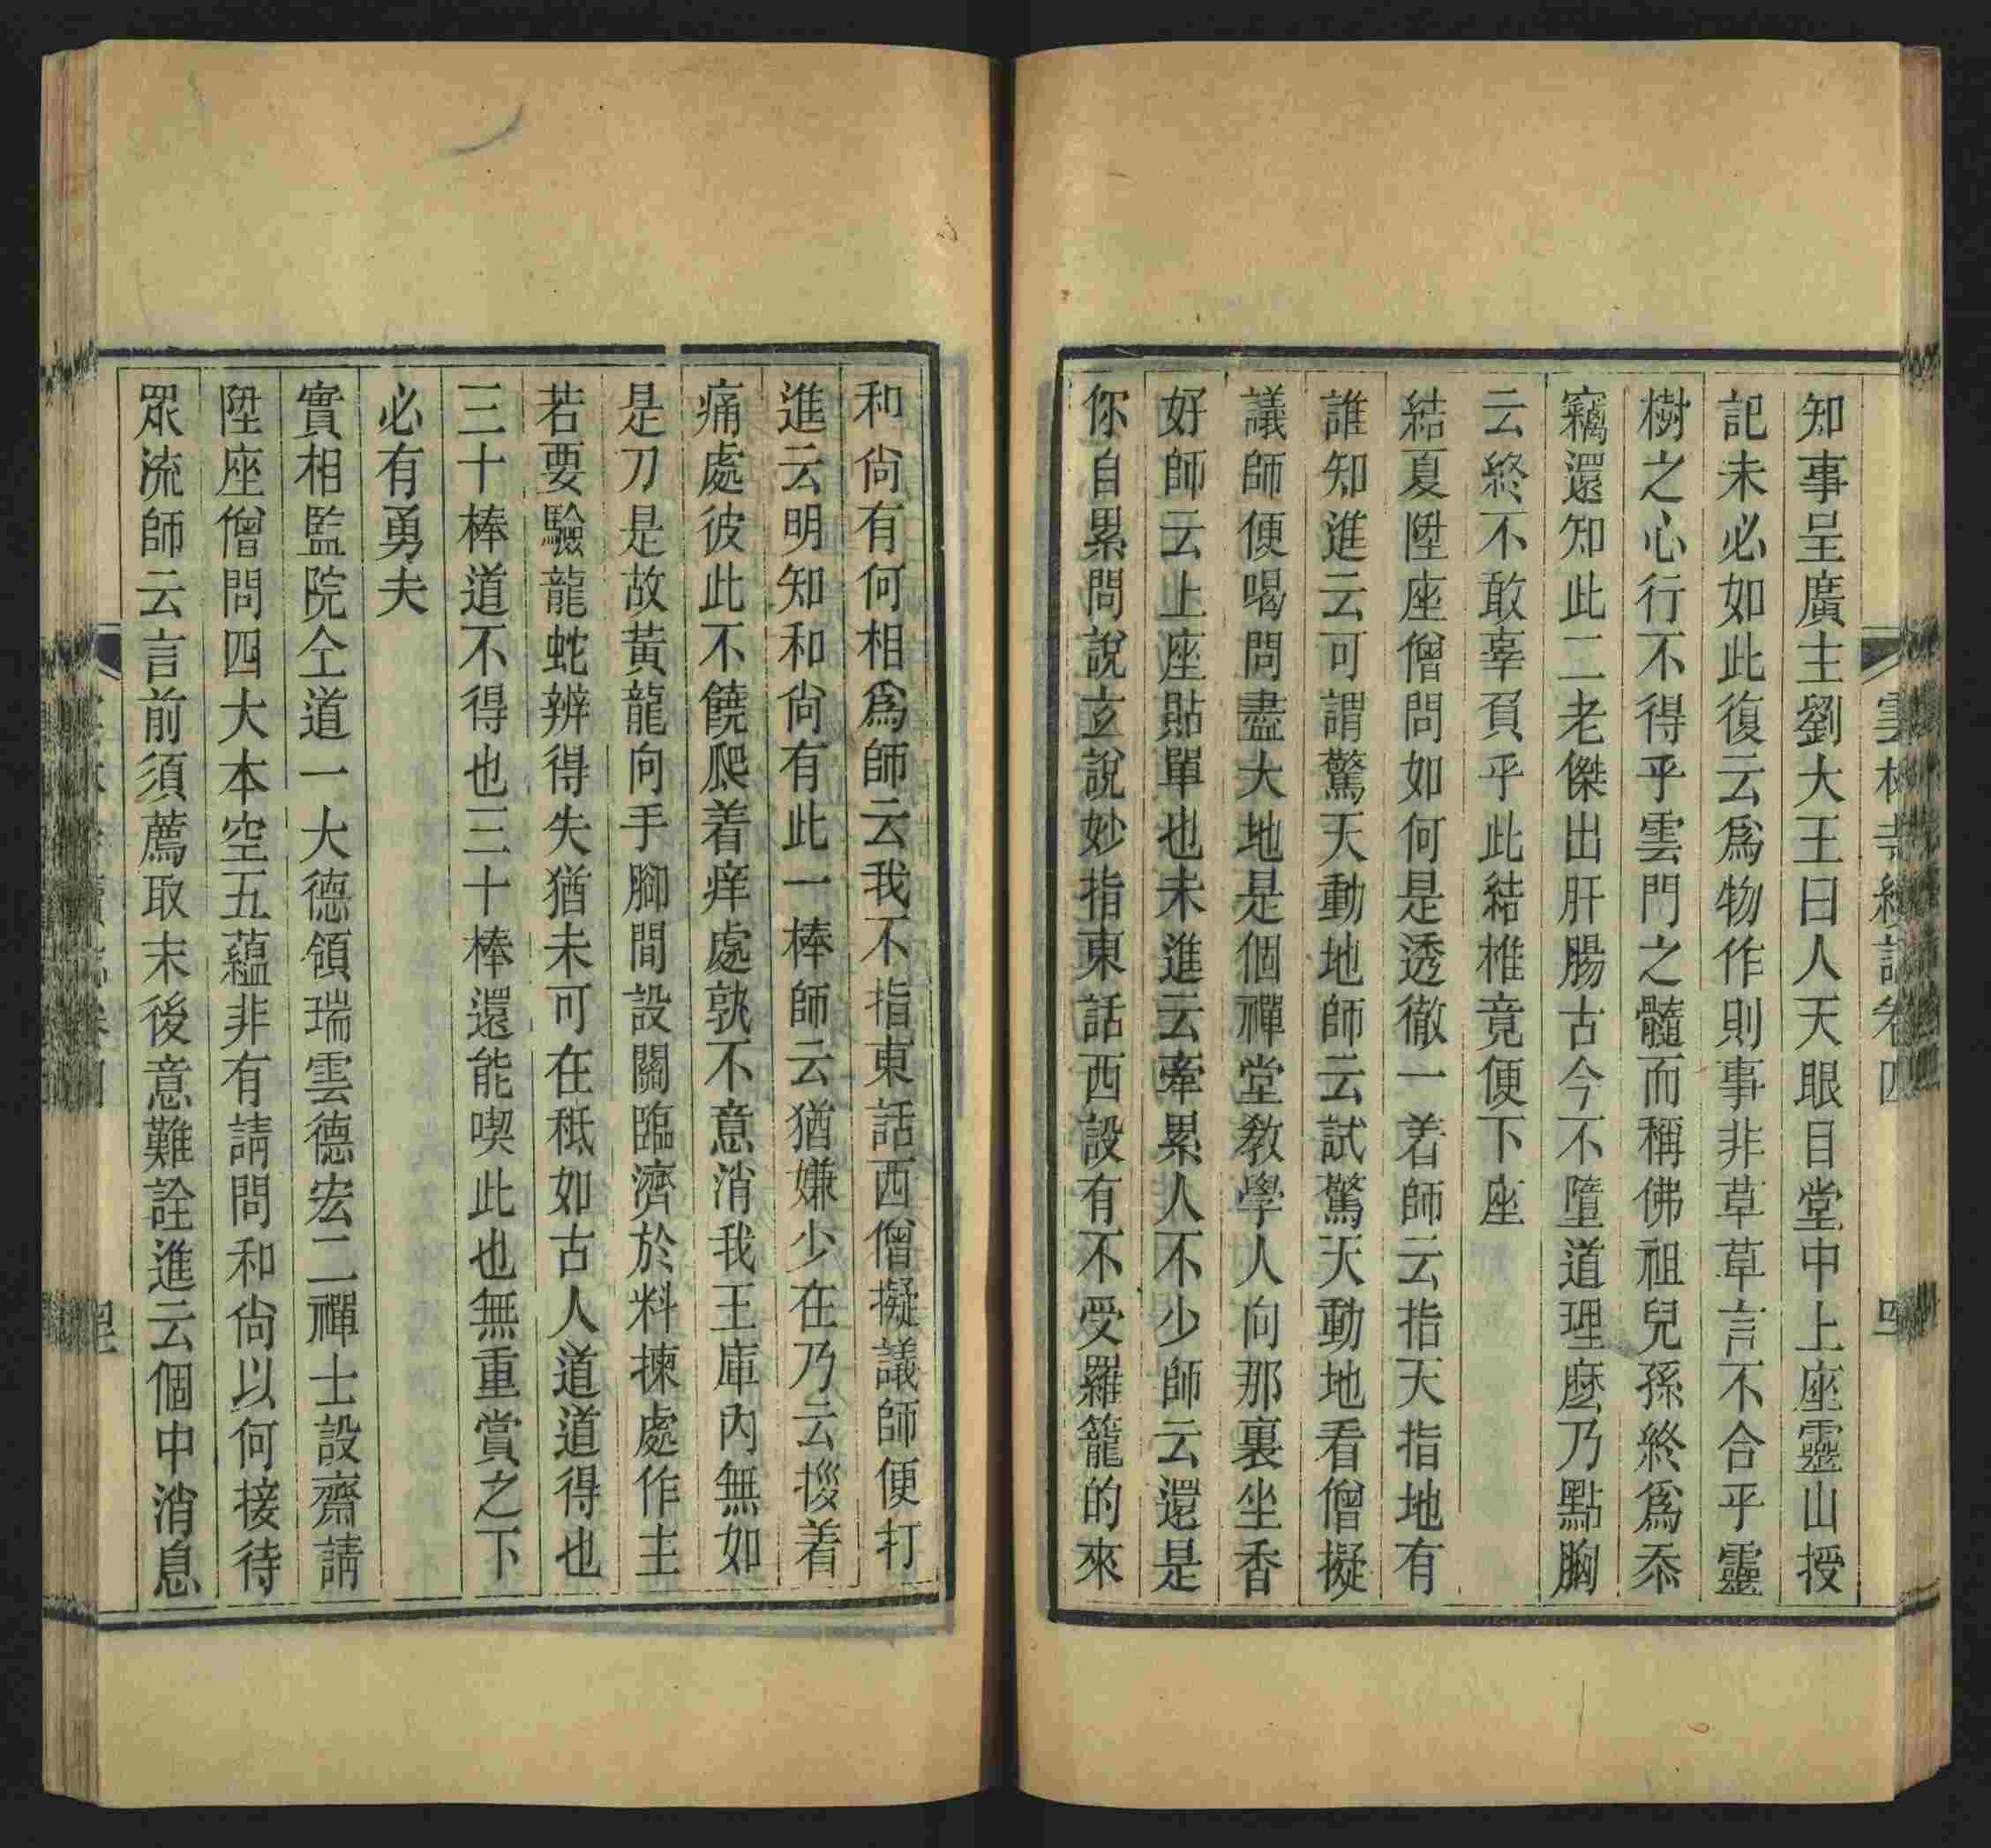 雲林寺續誌卷四
知事呈廣主劉大王曰人天眼目堂中上座靈山授
記未必如此復云爲物作則事非草草言不合乎靈
樹之心行不得乎雲門之髓而稱佛祖兒孫終爲忝
竊還知此二老傑出肝腸古今不墮道理麽乃點胸
云終不敢辜負乎此結椎竟便下座
結夏陞座僧問如何是透徹一着師云指天指地有
誰知進云可謂驚天動地師云試驚天動地看僧擬
議師便喝問盡大地是個禪堂教學人向那裏坐香
好師云上座貼單也未進云牽累人不少師云還是
你自累問說玄說妙指東話西設有不受羅籠的來
和尚有何相爲師云我不指東話西僧擬議師便打
進云明知和尚有此一棒師云猶嫌少在乃云拶着
痛處彼此不饒爬着痒處孰不意消我王庫內無如
是刀是故黃龍向手腳間設關臨濟於料揀處作主
若要驗龍蛇辨得失猶未可在秪如古人道道得也
三十棒道不得也三十棒還能喫此也無重賞之下
必有勇夫
實相監院仝道一大德領瑞雲德宏二禪士設齋請
陞座僧問四大本空五蘊非有請問和尚以何接待
眾流師云言前須薦取末後意難詮進云個中消息